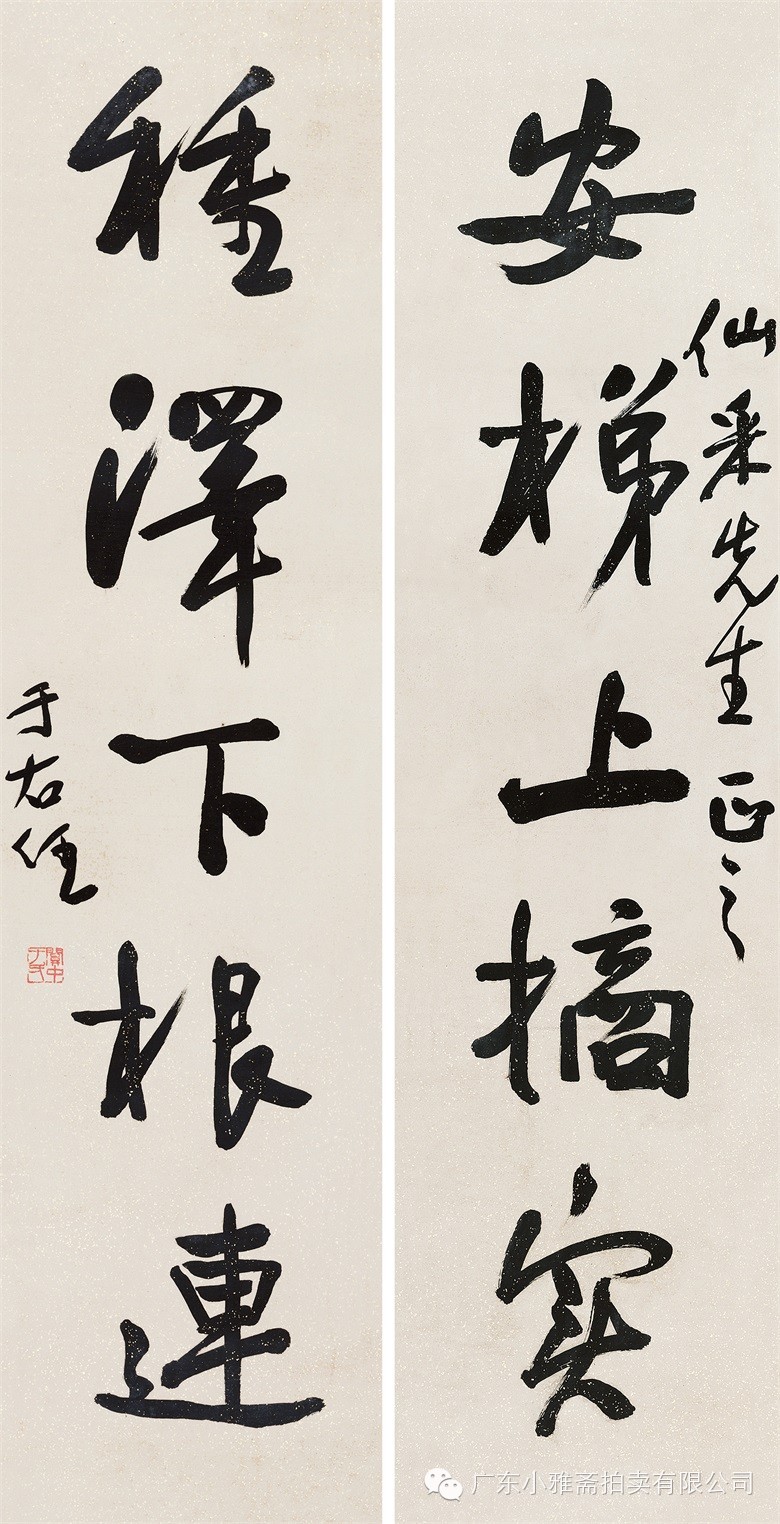 安梯上摘实
仙采先生正之
種澤下根連
于右任
關中于氏
广东小雅斋拍卖有限公司